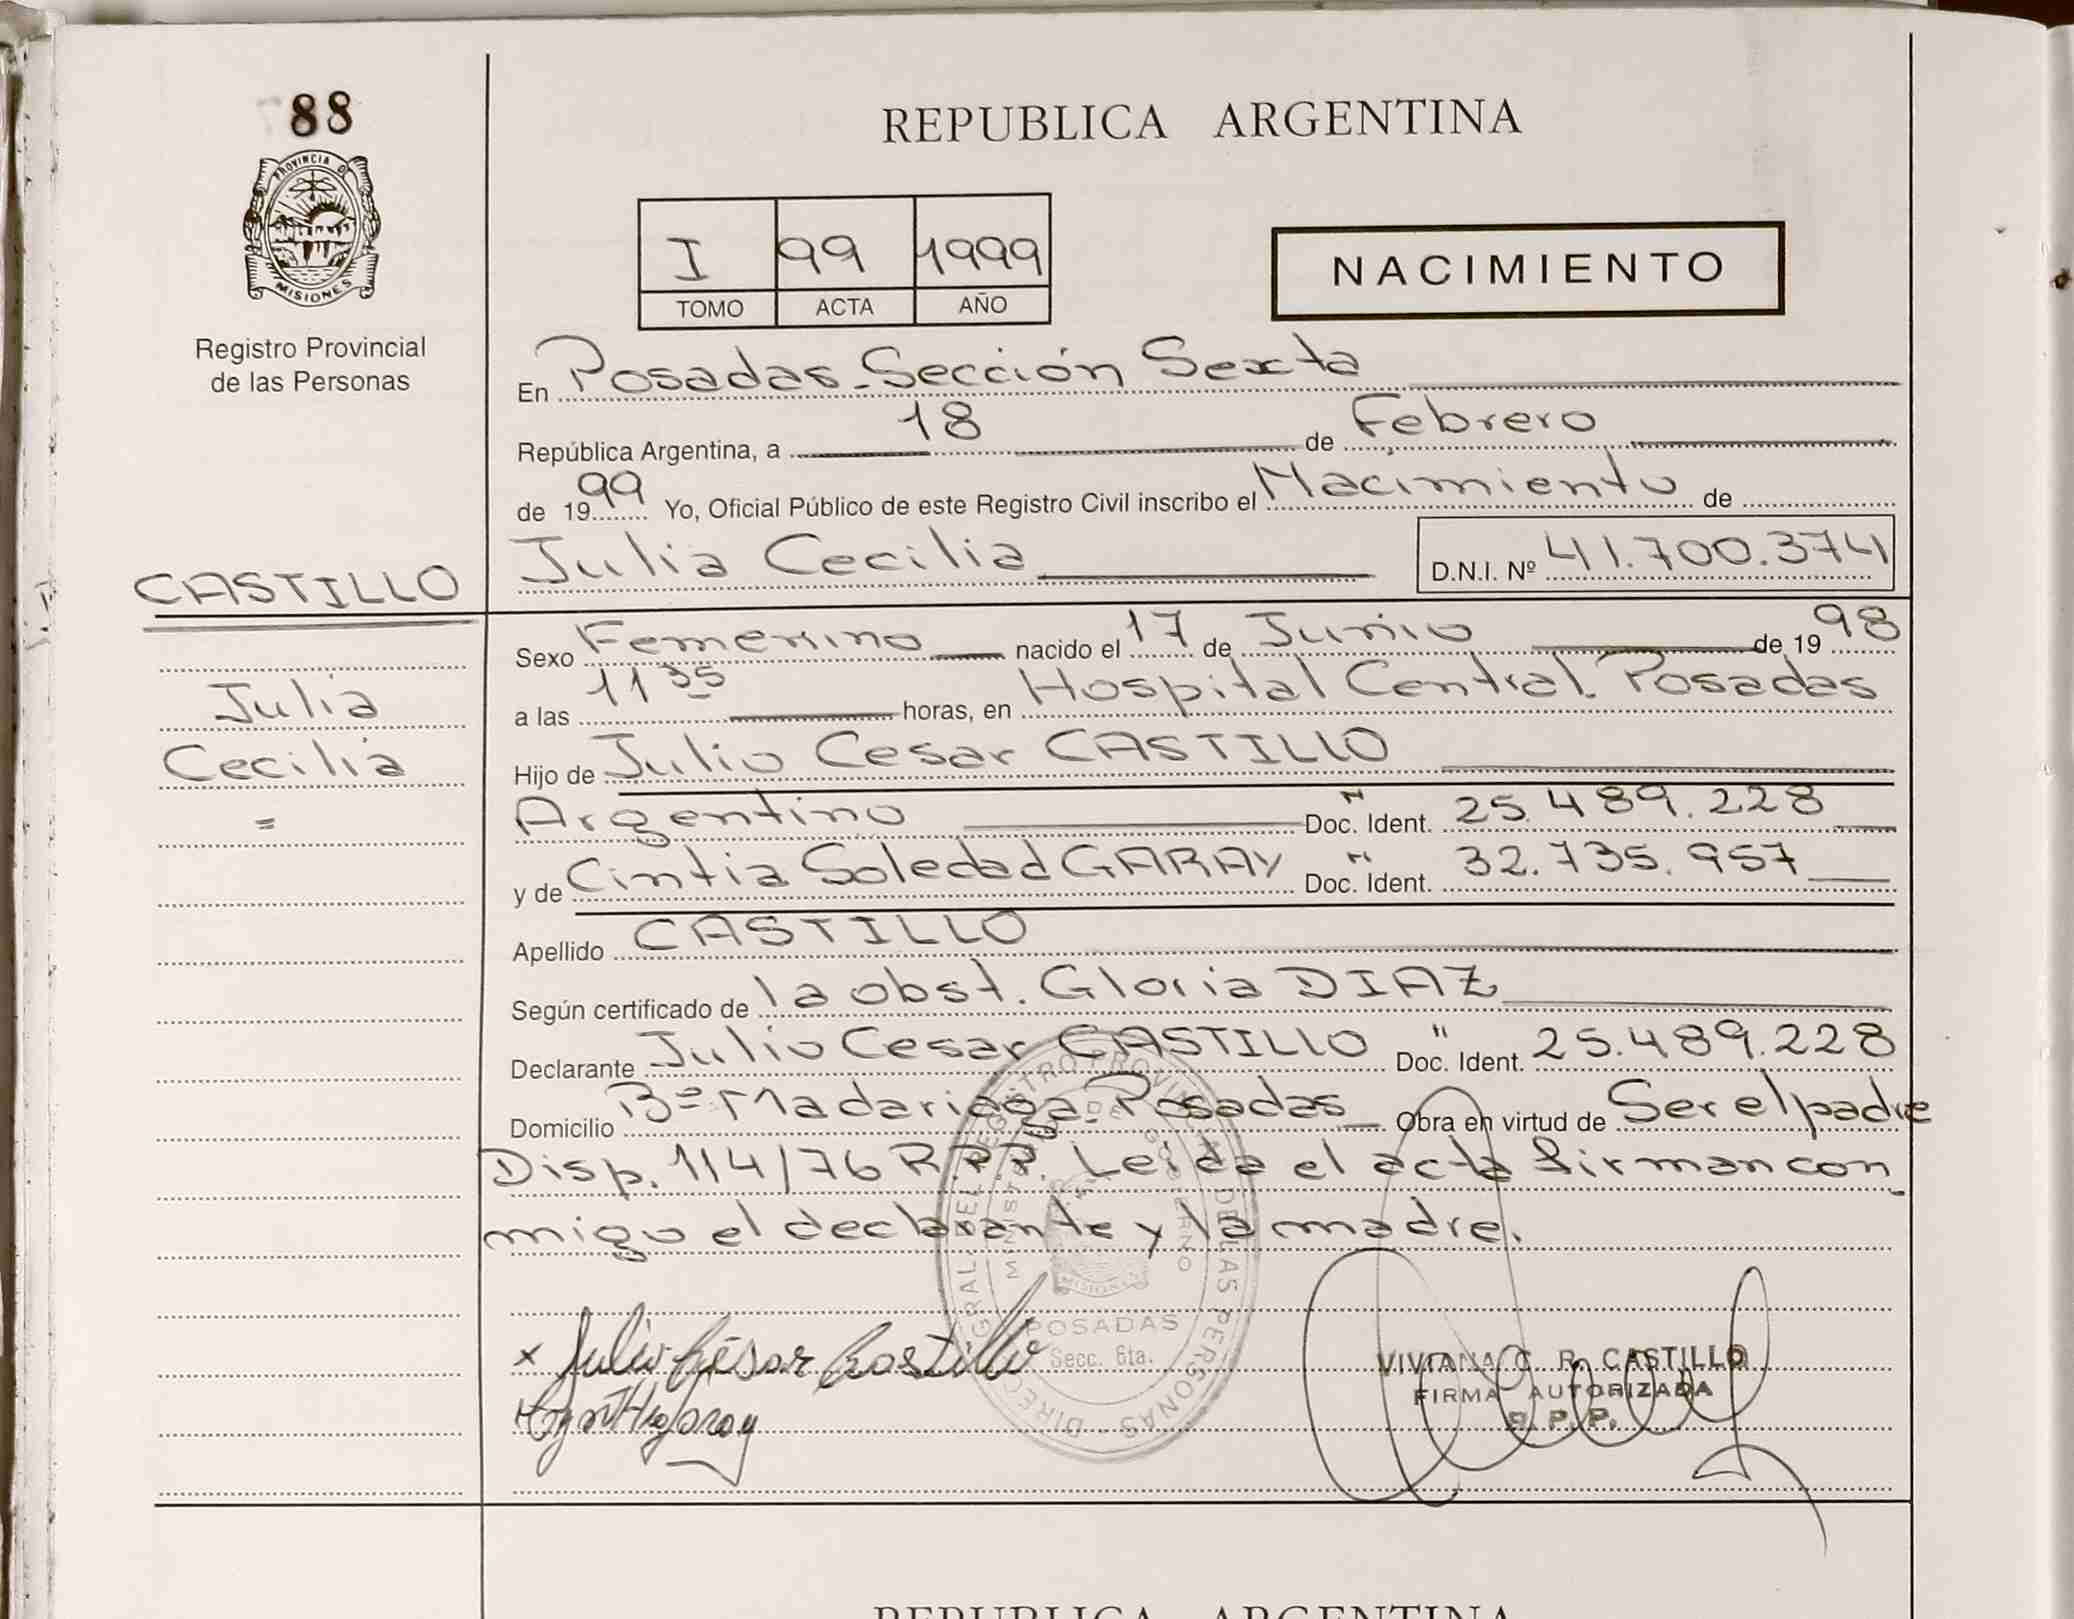 88
PROVINCIA DE
MISIONES
Registro Provincial
de las Personas
REPUBLICA ARGENTINA
I 99 1999
TOMO ACTA AÑO
NACIMIENTO
En Posadas-Sección Sexta
República Argentina, a 18 de Febrero
de 1999 Yo, Oficial Público de este Registro Civil inscribo el Nacimiento de
Julia Cecilia D.N.I. Nº 41.700.374
CASTILLO
Julia
Cecilia
=
Sexo Femenino nacido el 17 de Junio de 1998
a las 11 35 horas, en Hospital Central. Posadas
Hijo de Julio Cesar CASTILLO
Argentino " Doc. Ident. 25.489.228
y de Cintia Soledad GARAY " Doc. Ident. 32.735.957
Apellido CASTILLO
Según certificado de la obst. Gloria DIAZ
Declarante Julio Cesar CASTILLO " Doc. Ident. 25.489.228
Domicilio Bº Madariaga-Posadas Obra en virtud de Ser el padre
Disp. 114/76 R.P.P. Leida el acta firman con
migo el declarante y la madre.
x Julio César Castillo
DIREC GRAL DEL REGISTRO PROVINCIAL DE LAS PERSONAS
MINISTERIO DE GOBIERNO
MISIONES
POSADAS
Secc. 6ta.
VIVIANA C R. CASTILLO
FIRMA AUTORIZADA
R. P. P.
REPUBLICA ARGENTINA